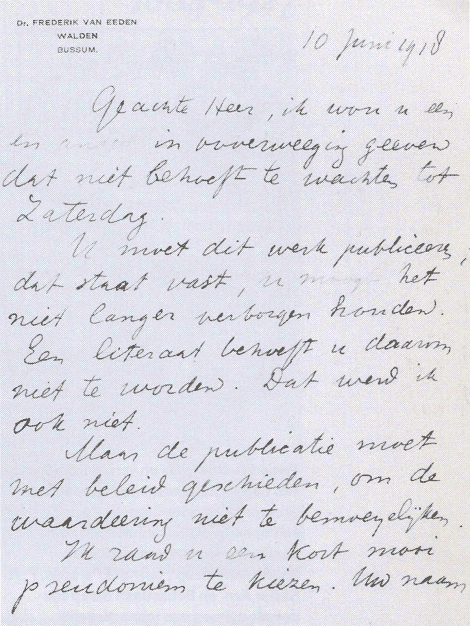 Dr. FREDERIK VAN EEDEN
WALDEN
BUSSUM.
10 Juni 1918
Geachte Heer, ik wou u een
en ander in overweeging geeven
dat niet behoeft te wachten tot
Zaterdag.
U moet dit werk publiceeren,
dat staat vast, u moogt het
niet langer verborgen houden.
Een literaat behoeft u daarom
niet te worden. Dat werd ik
ook niet.
Maar de publicatie moet
met beleid geschieden, om de
waardeering niet te bemoeyelijken.
Ik raad u een kort mooi
pseudoniem te kiezen. Uw naam